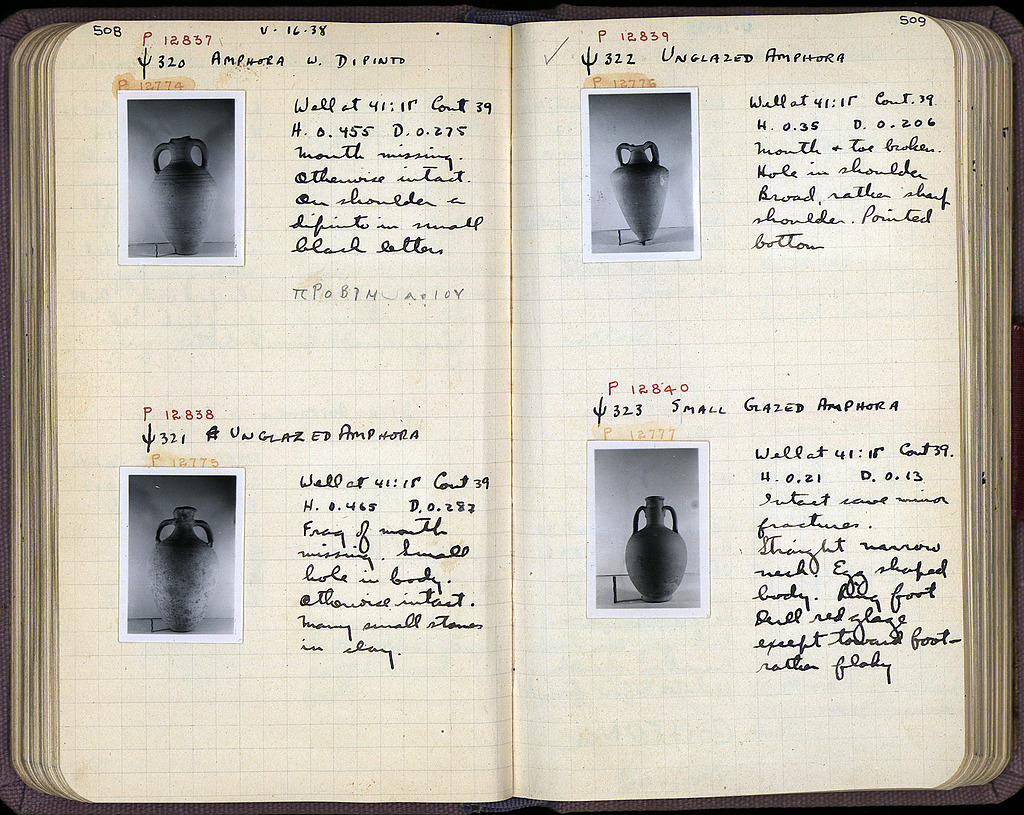 508
P 12837 V·16·38
ψ320 AMPHORA W. DIPINTO
P 12774
Well at 41:ΙΕ Cont 39
H. 0.455 D. 0.275
Mouth missing.
Otherwise intact.
On shoulder a
dipinto in small
black letters
P 12838
ψ321 UNGLAZED AMPHORA
P 12775
Well at 41:ΙΕ Cont 39
H. 0.465 D. 0.287
Frag of mouth
missing. Small
hole in body.
Otherwise intact.
Many small stones
in clay.
509
P 12839
ψ322 UNGLAZED AMPHORA
P 12776
Well at 41:ΙΕ Cont. 39
H. 0.35 D. 0.206
Mouth + toe broken.
Hole in shoulder
Broad, rather sharp
shoulder. Pointed
bottom
P 12840
ψ323 SMALL GLAZED AMPHORA
P 12777
Well at 41:ΙΕ Cont 39.
H. 0.21 D. 0.13
Intact save minor
fractures.
Straight narrow
neck. Egg shaped
body. Ring foot
Dull red glaze
except toward foot–
rather flaky